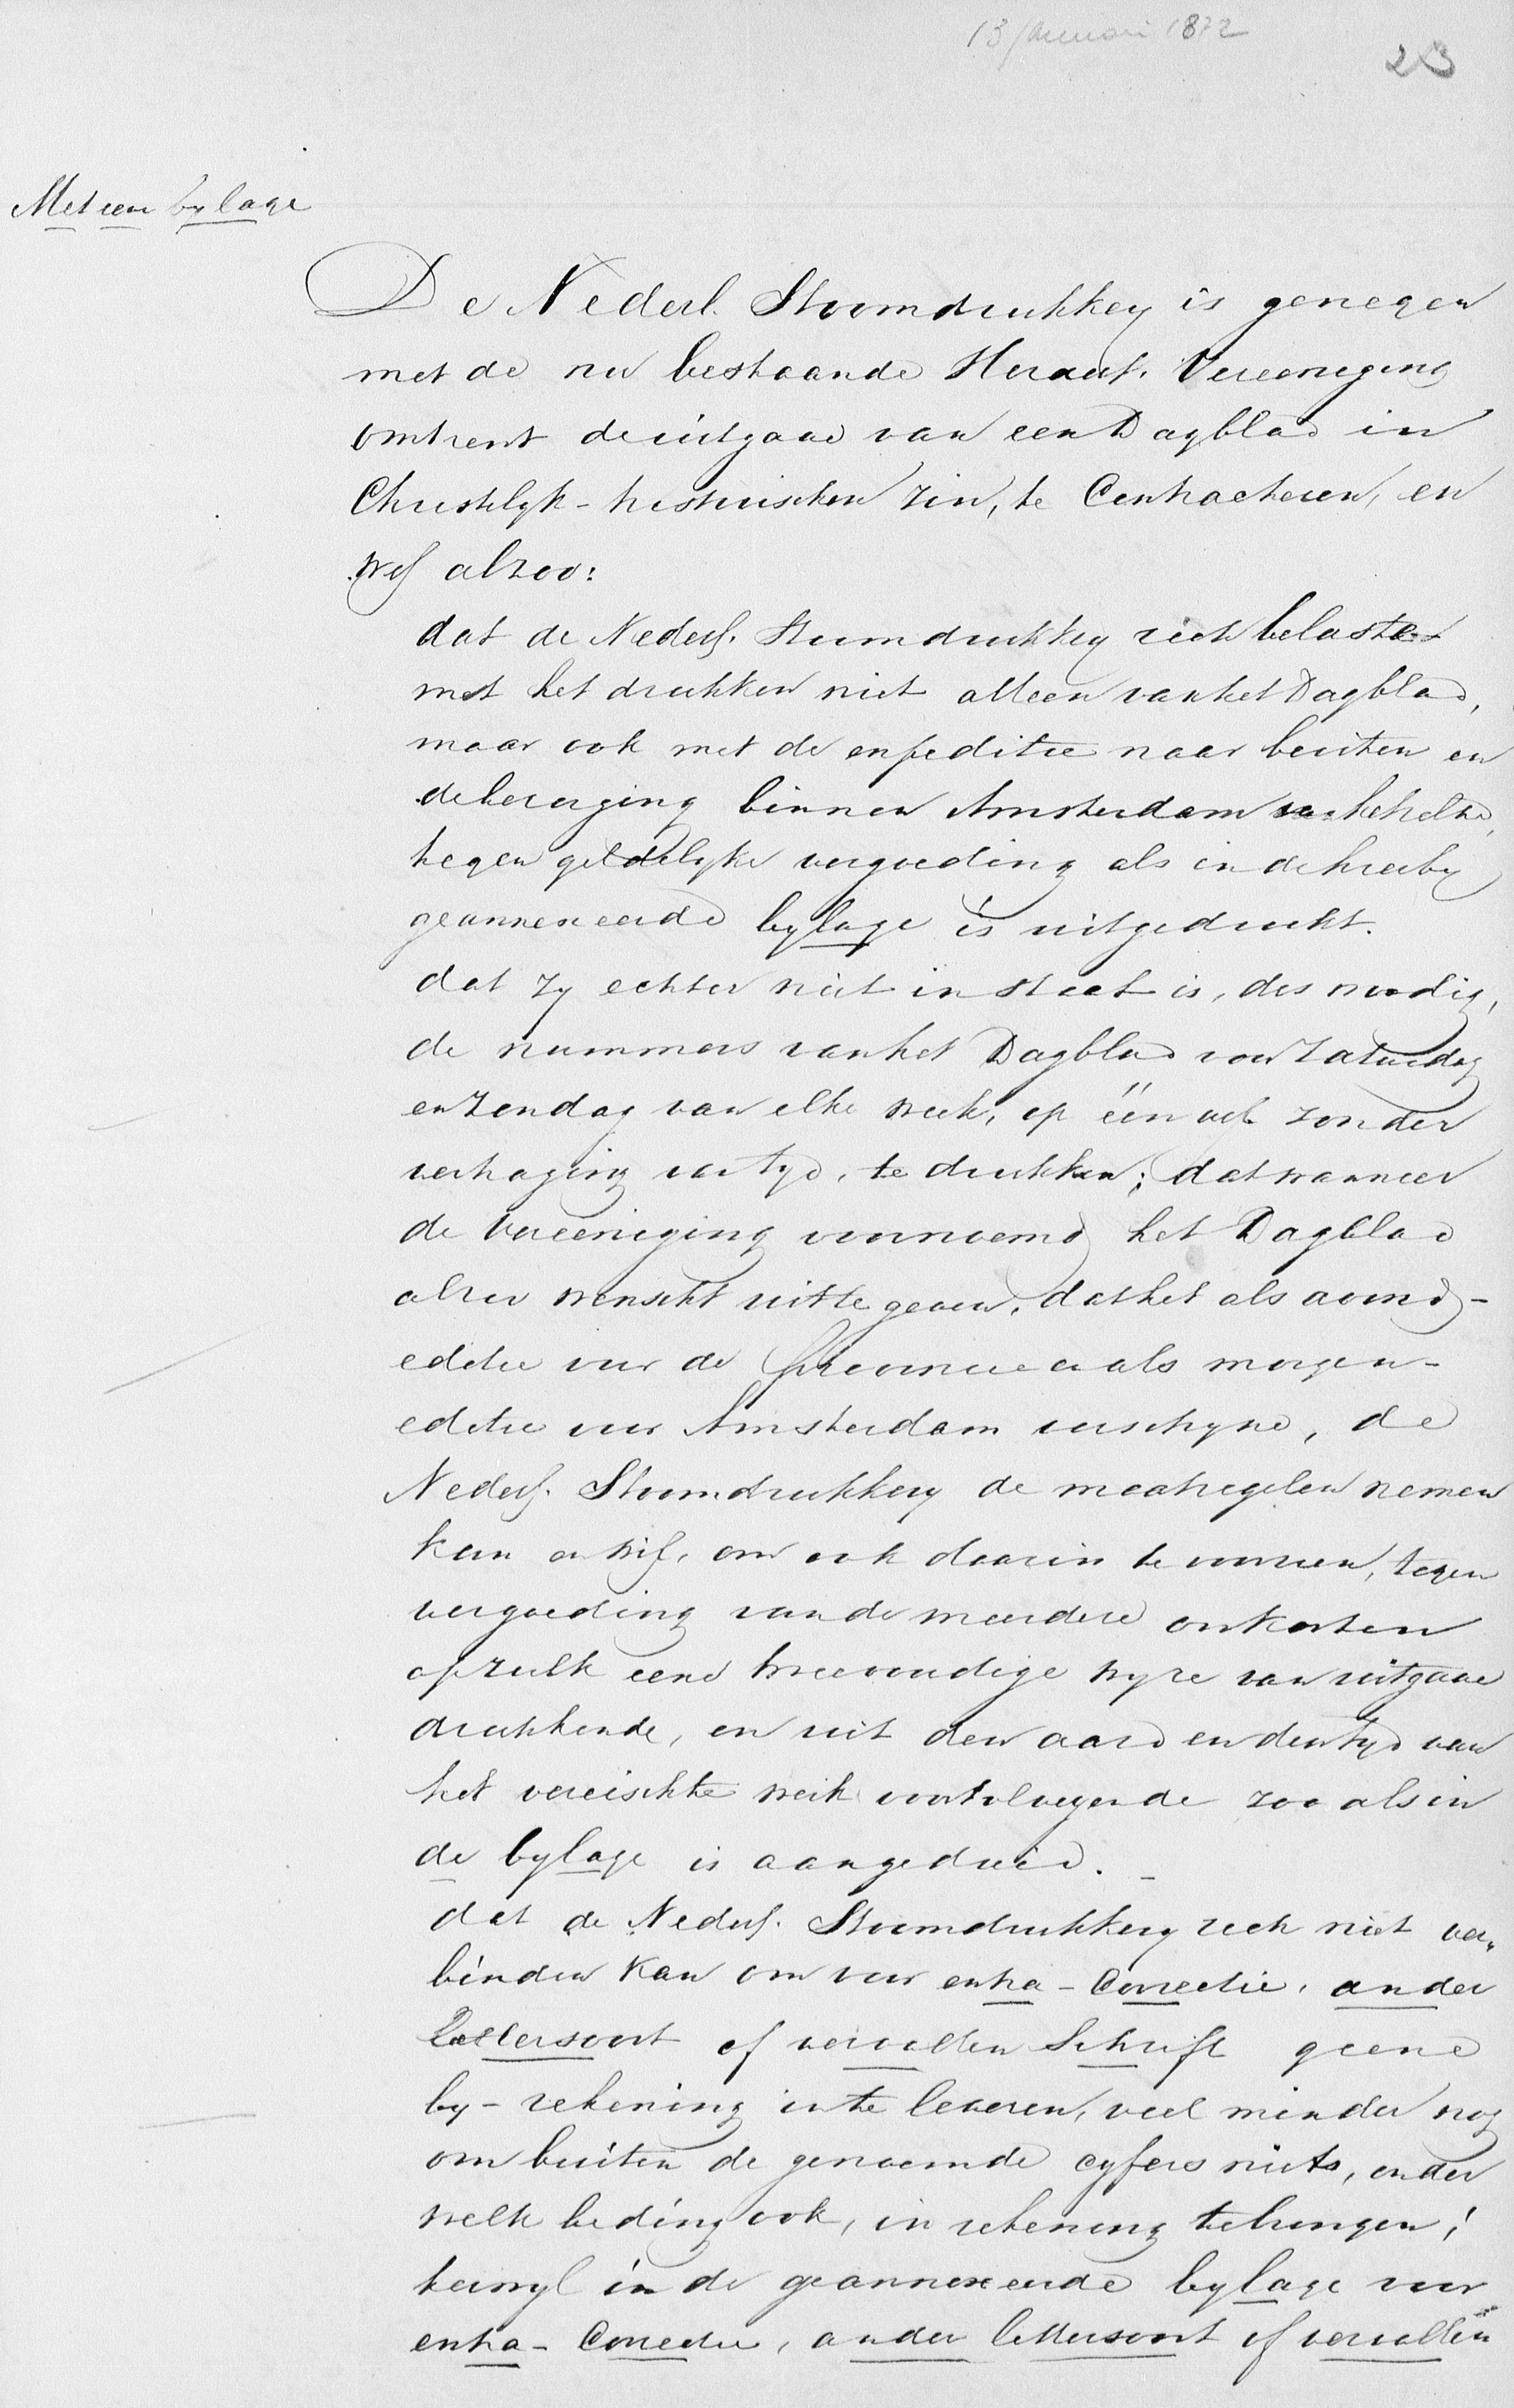 13 Januari 1872
23
Met een bylage
De Nederl. Stoomdrukkery is genegen
met de nu bestaande Heraut. Vereeniging
omtrent de uitgave van een Dagblad in
Christelyk-historischen zin, te Contracteren, en
wel alzoo:
dat de Nederl. Stoomdrukkery zich belaste
met het drukken niet alleen van het Dagblad,
maar ook met de expeditie naar buiten en
de bezorging binnen Amsterdam van hetzelve,
tegen geldelyke vergoeding als in de hierby
geannexeerde bylage is uitgedrukt.
dat zy echter niet in staat is, des noodig,
de nummers van het Dagblad voor Zaturdag
en Zondag van elke week, op één vel zonder
verhoging van tyd, te drukken; dat wanneer
de Vereeniging voornoemd het Dagblad
alzoo wenscht uit te geven, dat het als avond-
editie voor de Provincie en als morgen-
editie voor Amsterdam verschyne, de
Nederl. Stoomdrukkery de maatregelen nemen
kan en wil, om ook daarin te voorzien, tegen
vergoeding van de meerdere onkosten
op zulk eene tweevoudige wyze van uitgave
drukkende, en uit den aard en den tyd van
het vereischte werk voortvloeyende zoo als in
de bylage is aangeduid.
dat de Nederl. Stoomdrukkery zich niet ver-
binden kan om voor extra-Correctie, ander
Lettersoort of vervallen Schrift geene
by-rekening in te leveren, veel minder nog
om buiten de genoemde cyfers niets, onder
welk beding ook, in rekening te brengen;
terwyl in de geannexeerde bylage voor
extra-Correctie, ander lettersoort of vervallen